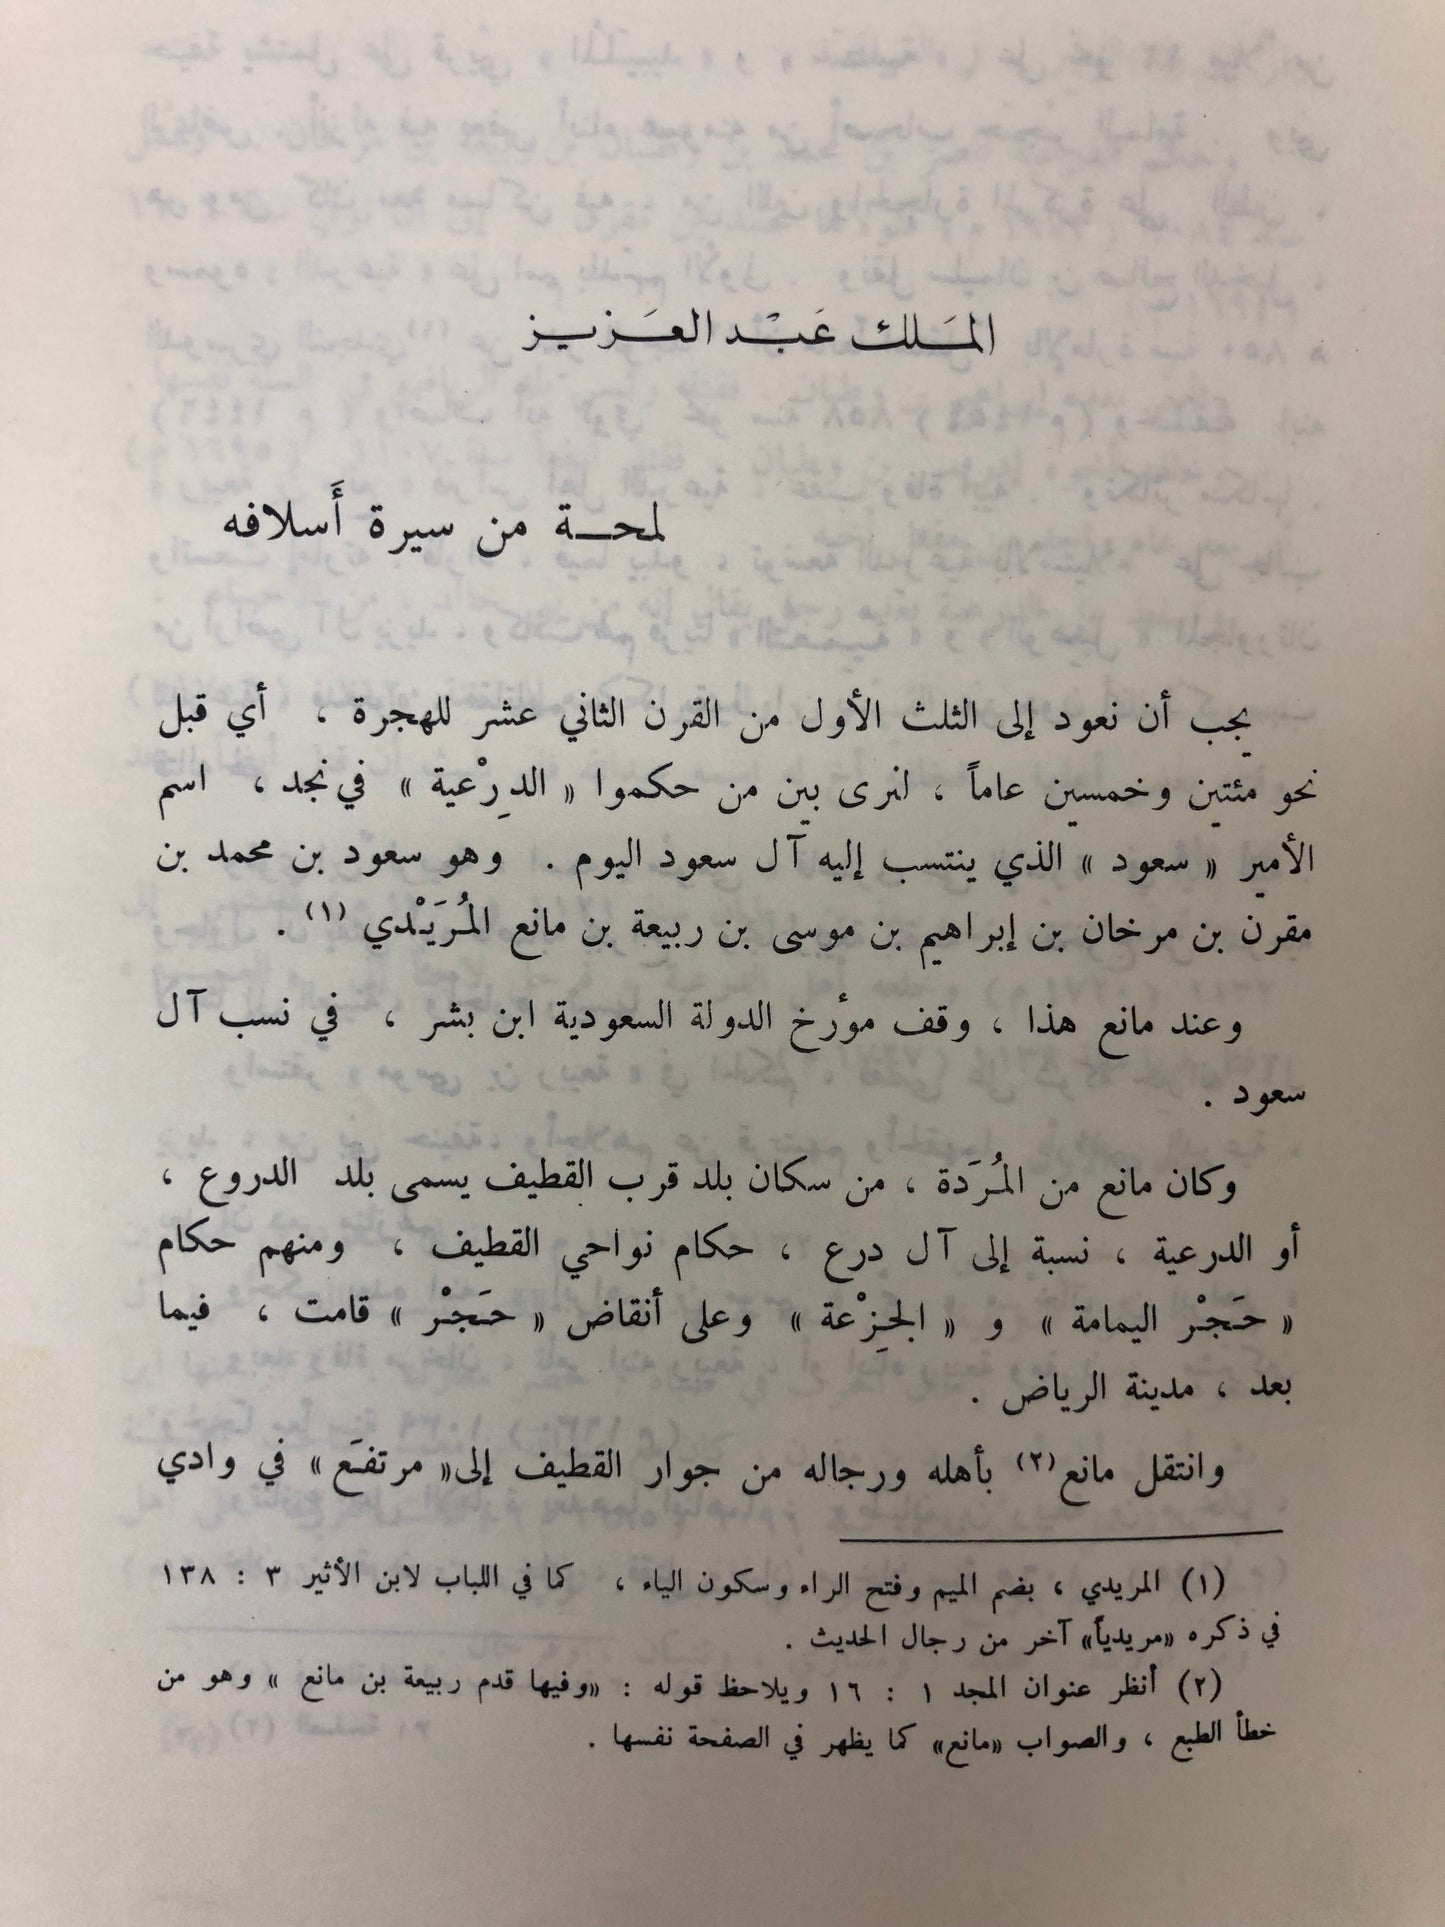 المَلك عَبْد العَزيز
لمحة من سيرة أَسلافه
يجب أن نعود إلى الثلث الأول من القرن الثاني عشر للهجرة ، أي قبل
نحو مئتين وخمسين عاماً ، لنرى بين من حكموا « الدِرْعية » في نجد ، اسم
الأمير « سعود » الذي ينتسب إليه آل سعود اليوم . وهو سعود بن محمد بن
مقرن بن مرخان بن إبراهيم بن موسى بن ربيعة بن مانع المُرَيْدي (١) .
وعند مانع هذا ، وقف مؤرخ الدولة السعودية ابن بشر ، في نسب آل
سعود .
وكان مانع من المُرَدة ، من سكان بلد قرب القطيف يسمى بلد الدروع ،
أو الدرعية ، نسبة إلى آل درع ، حكام نواحي القطيف ، ومنهم حكام
« حَجْر اليمامة » و « الجِزْعة » وعلى أنقاض « حَجْر » قامت ، فيما
بعد ، مدينة الرياض .
وانتقل مانع(٢) بأهله ورجاله من جوار القطيف إلى« مرتفَع » في وادي
(١) المريدي ، بضم الميم وفتح الراء وسكون الياء ، كما في اللباب لابن الأثير ٣ : ١٣٨
في ذكره «مريدياً» آخر من رجال الحديث .
(٢) أنظر عنوان المجد ١ : ١٦ ويلاحظ قوله : «وفيها قدم ربيعة بن مانع » وهو من
خطأ الطبع ، والصواب «مانع» كما يظهر في الصفحة نفسها .